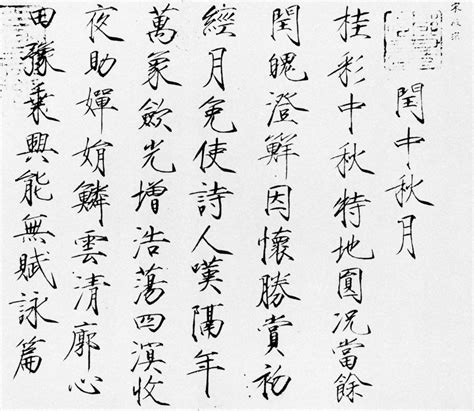 閏中秋月
桂彩中秋特地圓况當餘
閏魄澄鮮因懷勝賞初
經月免使詩人嘆隔年
萬象歛光增浩蕩四溟收
夜助嬋娟鱗雲清廓心
田豫乗興能無賦詠篇